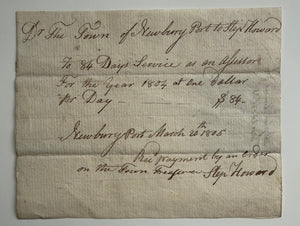 Dr The Town of Newbury Port to Step Howard
To 84 Days Service as an Assessor
For the Year 1804 at one Dollar
Per Day — $ 84.
Newbury Port March 20th 1805
Rec payment by an order
on the Town Treasurer Step Howard